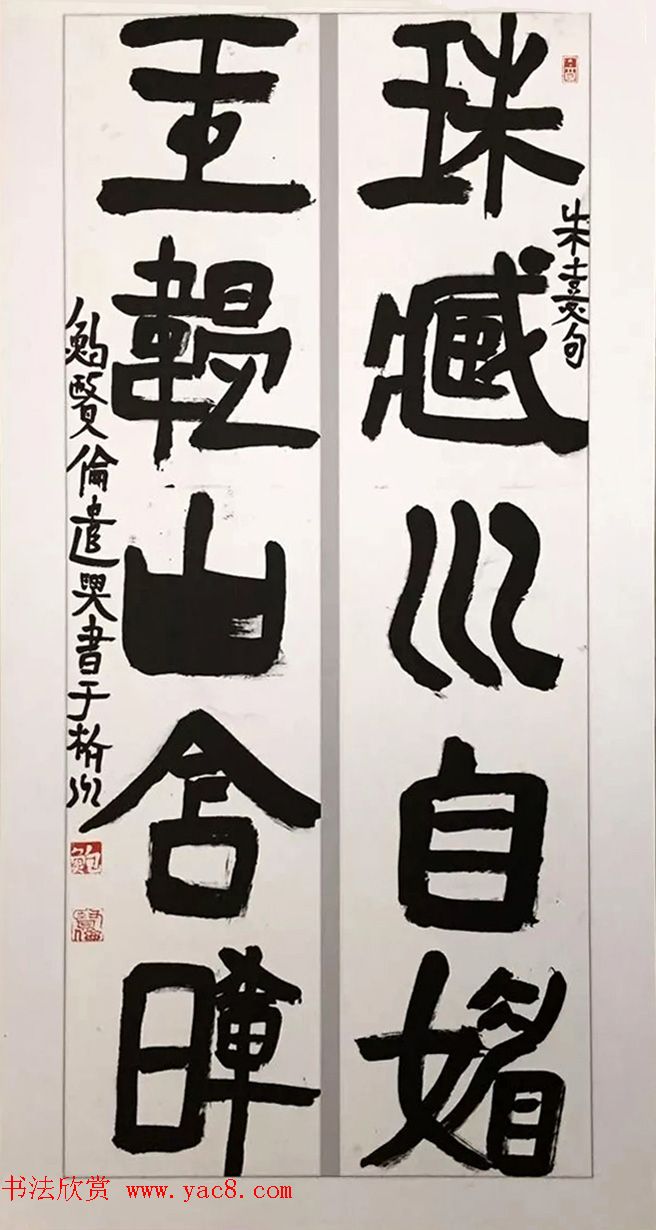 珠藏川自媚
朱熹句
玉韞山含暉
鮑賢倫遣興書于杭州
鮑
书法欣赏 www.yac8.com